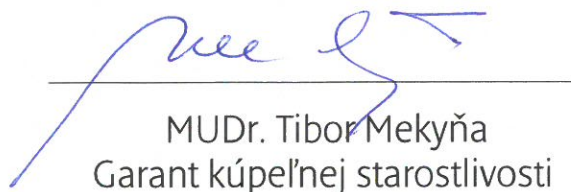 MUDr. Tibor Mekyňa
Garant kúpeľnej starostlivosti